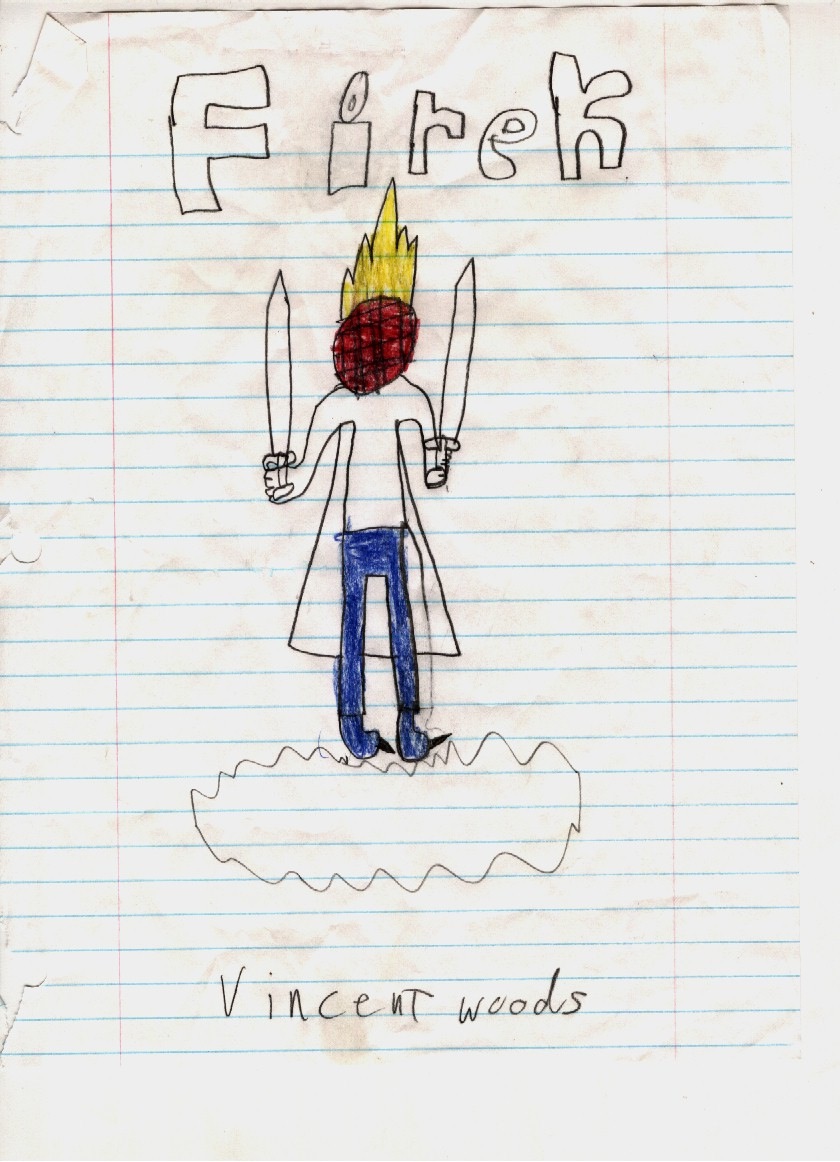 Firek
Vincent woods